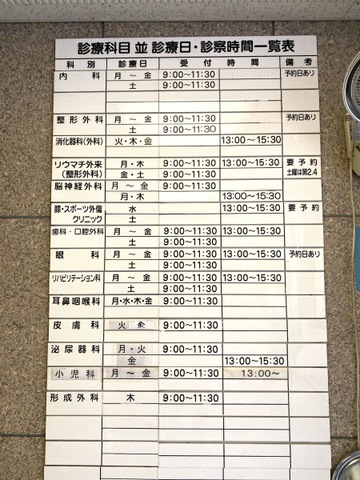 診療科目 並 診療日・診察時間一覧表
科 別 診 療 日 受 付 時 間 備 考
内 科 月 ～ 金 9:00～11:30 予約日あり
土 9:00～11:30
整 形 外 科 月 ～ 金 9:00～11:30 予約日あり
土 9:00～11:30
消化器科(外科) 火・木・金 13:00～15:30
リウマチ外来 月・木 9:00～11:30 13:00～15:30 要 予 約
(整形外科) 金・土 9:00～11:30 土曜は第2.4
脳神経外科 月 ～ 金 9:00～11:30
月・木 13:00～15:30
膝・スポーツ外傷 水 13:00～15:30 要 予 約
クリニック 土 9:00～11:30
歯科・口腔外科 月 ～ 金 9:00～11:30 13:00～15:30
土 9:00～11:30
眼 科 月 ～ 金 9:00～11:30 13:00～15:30 予約日あり
土 9:00～11:30
リハビリテーション科 月 ～ 金 9:00～11:30 13:00～15:30
土 9:00～11:30
耳鼻咽喉科 月・水・木・金 9:00～11:30
皮 膚 科 火 金 9:00～11:30
泌尿器科 月・火 9:00～11:30
金 13:00～15:30
小 児 科 月 ～ 金 9:00～11:30 13:00～
形成外科 木 9:00～11:30